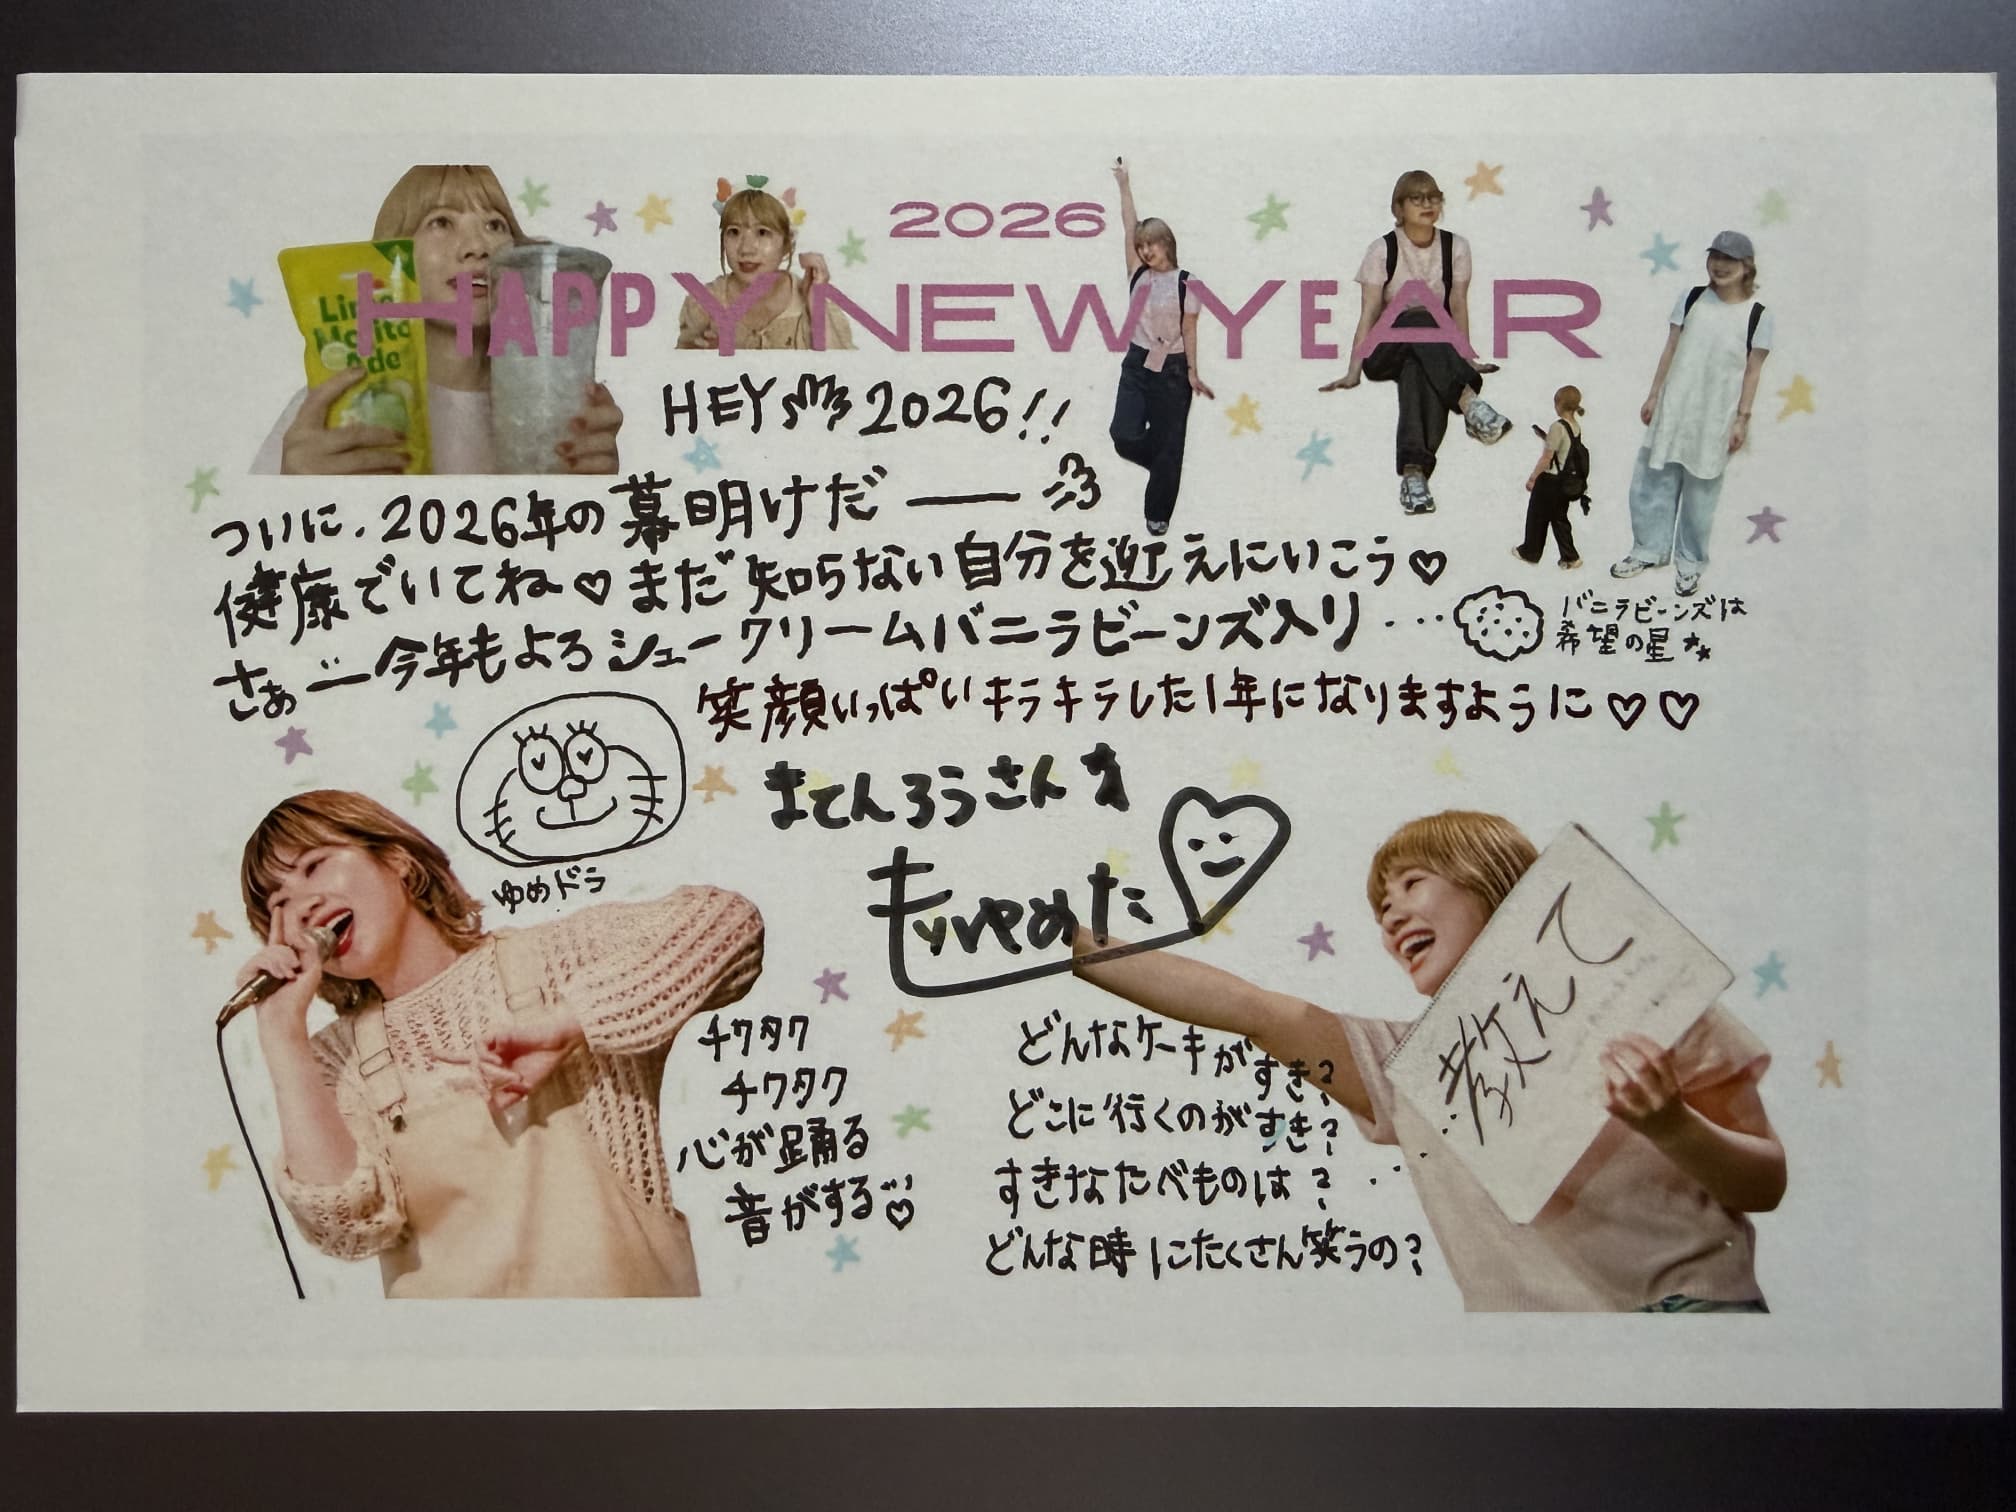 2026
HAPPY NEW YEAR
Lime
Mojito
Ade
HEY 2026!!
ついに、2026年の幕明けだー
健康でいてね♡まだ知らない自分を迎えにいこう♡
さぁ今年もよろシュークリームバニラビーンズ入り…
バニラビーンズは
希望の星
笑顔いっぱいキラキラした1年になりますように♡♡
ゆめドラ
まてんろうさん
チクタク
チクタク
心が踊る
音がする♡
どんなケーキがすき?
どこに行くのがすき?
すきなたべものは?
どんな時にたくさん笑うの?
教えて